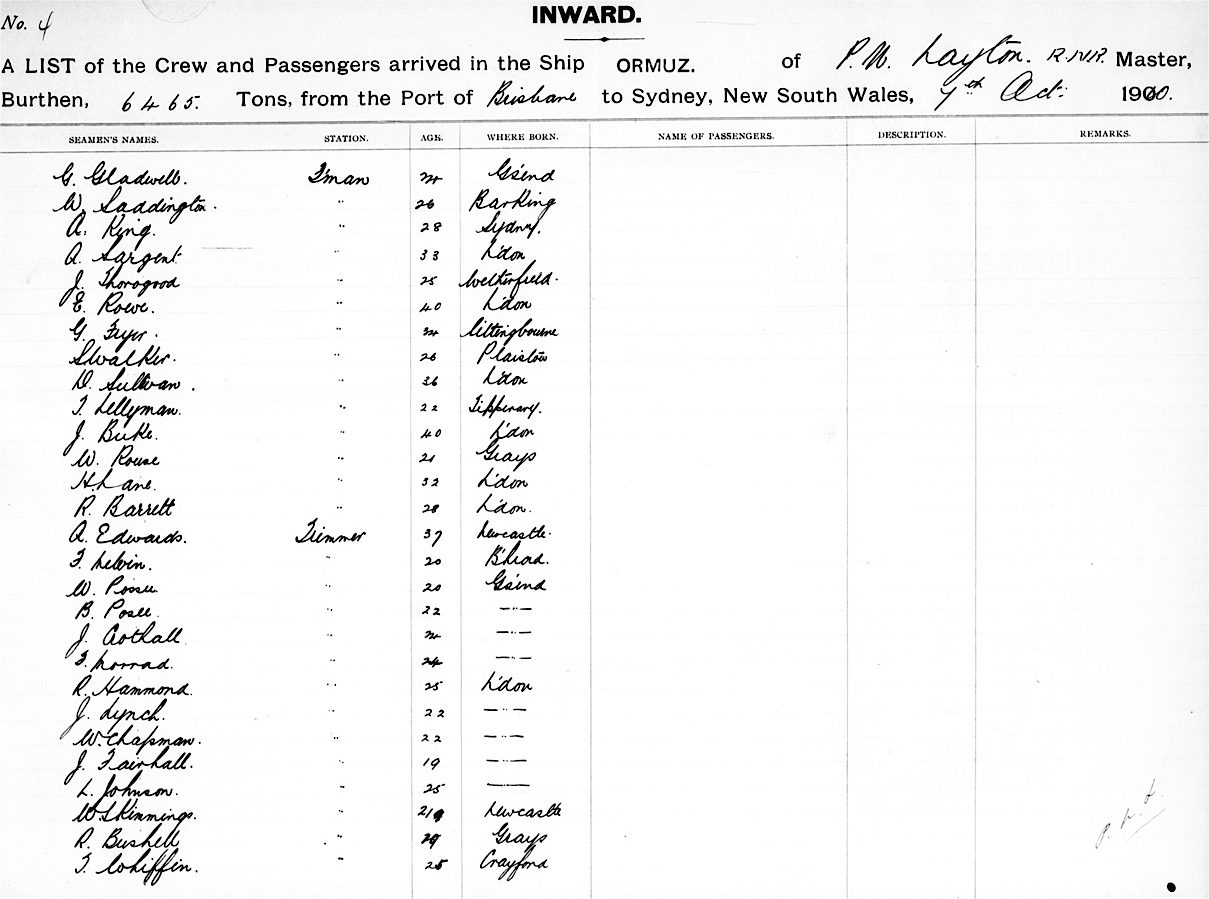 No. 4
INWARD.
A LIST of the Crew and Passengers arrived in the Ship ORMUZ. of P.M. Layton. R.N.R. Master,
Burthen, 6465. Tons, from the Port of Brisbane to Sydney, New South Wales, 7th Oct: 1900.
SEAMEN'S NAMES. STATION. AGE. WHERE BORN. NAME OF PASSENGERS. DESCRIPTION. REMARKS.
G. Gladwell. F'man G'send
W. Saddington. " 26 Barking
A. King. " 28 Sydney.
A. Sargent " 33 L'don
J. Thorogood " 25 Wetherfield.
E. Rowe. " 40 L'don
G. Fryer. " Sittingbourne
S Walker. " 26 Plaistow
D. Sullivan. " 36 L'don
T. Lellyman. " 22 Tipperary.
J. Burke. " 40 L'don
W. Rouse " 21 Grays
H. Lane. " 32 L'don
R. Barrett " 28 L'don.
A. Edwards. Trimmer 37 Newcastle.
F. Melvin. " 20 B'head.
W. Possee " 20 G'send
B. Posee " 22 —"—
J. " —"—
F. Morrad. " 24 —"—
R. Hammond. " 25 L'don
J. Lynch. " 22 —"—
W. Chapman. " 22 —"—
J. Fairhall. " 19 —"—
L. Johnson. " 25 —"—
W Skimmings. " Newcastle
R. Bushell " 29 Grays
T. Whiffin. " 25 Crayford